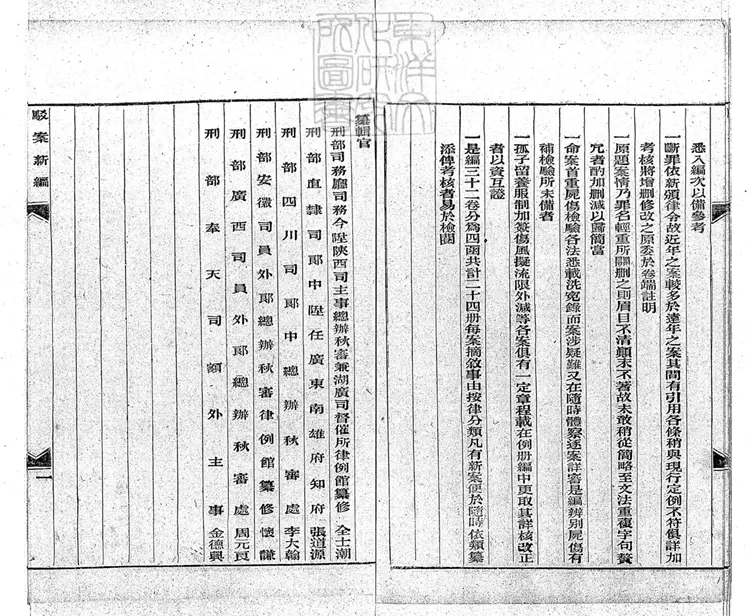 悉入編次以備參考
一斷罪依新頒律令故近年之案較多於遠年之案其間有引用各條稍與現行定例不符俱詳加
考核將增刪修改之原委於卷端註明
一原題案情乃罪名輕重所關刪之則眉目不清顛末不著故未敢稍從簡略至文法重複字句贅
冗者酌加刪減以歸簡當
一命案首重屍傷檢驗各法悉載洗寃錄而案涉疑難又在隨時體察逐案詳審是編辨別屍傷有
補檢驗所未備者
一孤子留養服制加簽傷風擬流限外減等各案俱有一定章程載在例册編中更取其詳核改正
者以資互證
一是編三十二卷分爲四函共計二十四册每案摘敘事由按律分類凡有新案便於隨時依類纂
添俾考核者易於檢閱
纂輯官
刑部司務廳司務今陞陝西司主事總辦秋審兼湖廣司督催所律例館纂修 全士潮
刑部直隸司郎中陞任廣東南雄府知府 張道源
刑部四川司郎中總辦秋審處 李大翰
刑部安徽司員外郎總辦秋審律例館纂修 懷謙
刑部廣西司員外郎總辦秋審處 周元良
刑部奉天司額外主事 金德輿
駁案新編
一
東洋文
化研究
所圖書